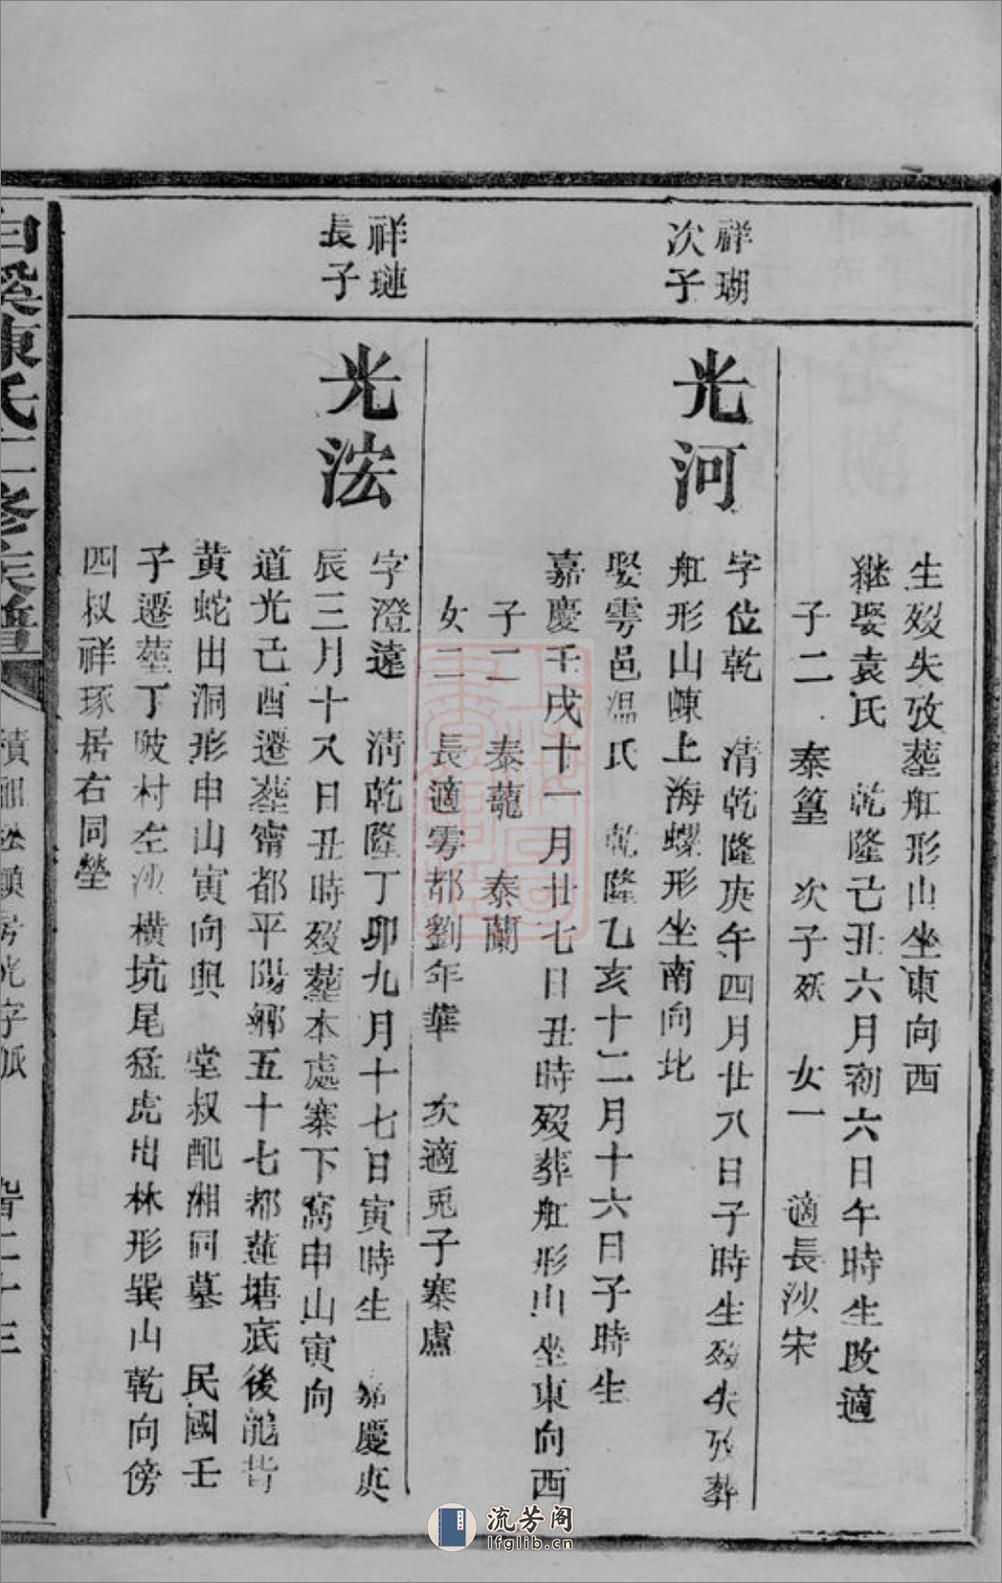 生歿失攷塟舡形山坐東向西
継娶袁氏　乾隆己丑六月初六日午時生改適
子二　泰篁　次子殀　女一　適長沙宋
祥瑚
次子
光河
字位乾　清乾隆庚午四月廿八日子時生歿失攷葬
舡形山崠上海螺形坐南向北
娶雩邑温氏　乾隆乙亥十二月十六日子時生
嘉慶壬戌十一月廿七日丑時歿葬舡形山坐東向西
子二　泰蘢　泰蘭
女二　長適雩都劉年華　次適兎子寨盧
祥璉
長子
光浤
字澄遠　清乾隆丁卯九月十七日寅時生　嘉慶庚
辰三月十八日丑時歿塟本處寨下窩申山寅向
道光己酉遷塟甯都平陽鄉五十七都蓮塘底後龍背
黄蛇出洞形申山寅向與　堂叔配湘同墓　民國壬
子遷塟丁陂村左沙橫坑尾猛虎出林形巽山乾向傍
四叔祥琢居右同塋
白溪陳氏七修族譜
光字派
二十三
流芳阁
lfglib.cn